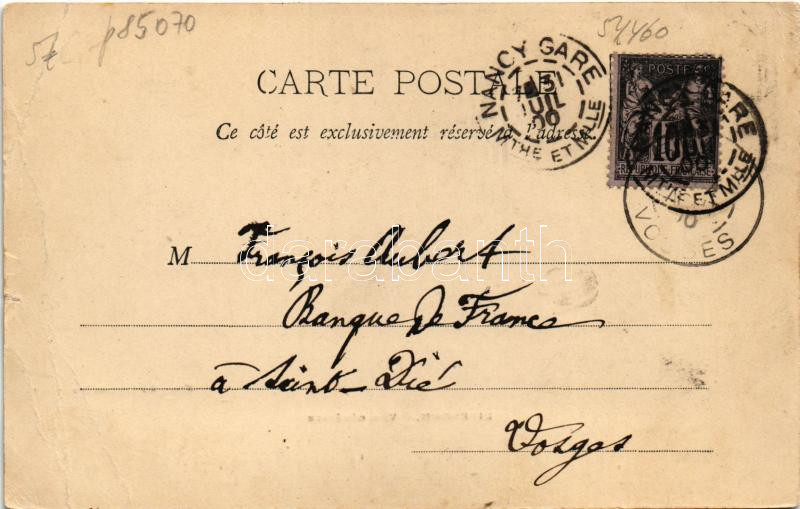 p85070
54460
CARTE POSTALE
Ce côté est exclusivement réservé à l'adresse.
NANCY GARE
JUIL
MTHE ET MLLE
POSTE
10
REPUBLIQUE FRANÇAISE
GARE
THE ET MLLE
VOSGES
M François Aubert
Banque de France
à Saint-Dié
Vosges
darabanth